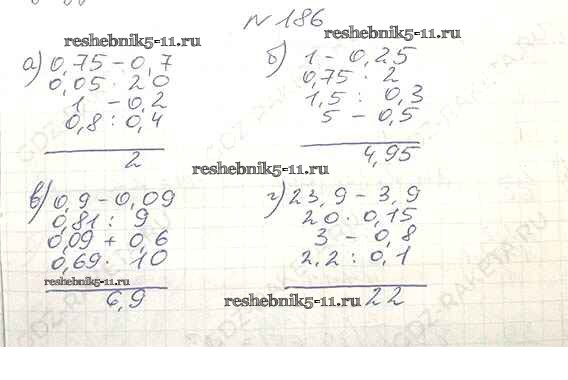 № 186
reshebnik5-11.ru
reshebnik5-11.ru
а) 0,75 - 0,7
0,05 · 20
1 - 0,2
0,8 : 0,4
2
б) 1 - 0,25
0,75 · 2
1,5 : 0,3
5 - 0,5
4,95
reshebnik5-11.ru
в) 0,9 - 0,09
0,81 : 9
0,09 + 0,6
0,69 · 10
reshebnik5-11.ru
6,9
г) 23,9 - 3,9
20 · 0,15
3 - 0,8
2,2 : 0,1
22
reshebnik5-11.ru